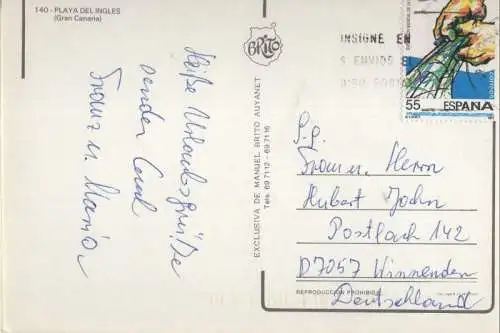 140 - PLAYA DEL INGLES
(Gran Canaria)
Heiße Urlaubsgrüße
senden Euch
Franz u. Maria
BRITO
EXCLUSIVA DE MANUEL BRITO AUYANET
Tels. 69 7112 - 69 7116
INSIGNE EN
S ENVIOS
55
ESPAÑA
Frau u. Herrn
Hubert John
Postfach 142
D7057 Winnenden
Deutschland
REPRODUCCION PROHIBIDA